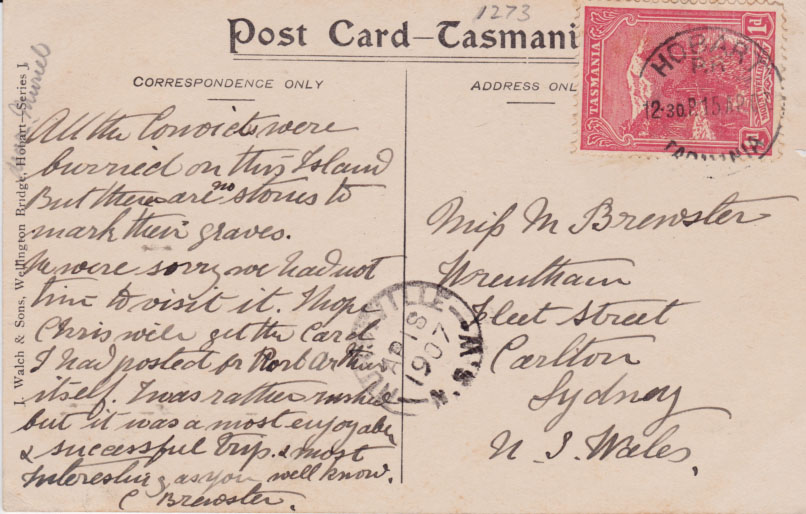 1273
Post Card—Tasmani
CORRESPONDENCE ONLY
ADDRESS ONL
TASMANIA
1d
1d
HOBART
12·30P 15 AP
TASMANIA
J. Walch & Sons, Wellington Bridge, Hobart—Series 1
Muriel
All the Convicts were
burried on this Island
But there are no stones to
mark their graves.
We were sorry we had not
time to visit it. I hope
Chris will get the Card
I had posted at Port Arthur
itself. I was rather rushed
but it was a most enjoyable
& sucessful Trip. & most
Interesting as you well know.
C Brewster.
Miss M Brewster
Wrentham
Fleet Street
Carlton
Sydney
N. S. Wales.
VILLE
AP 18
1907
N.S.W.